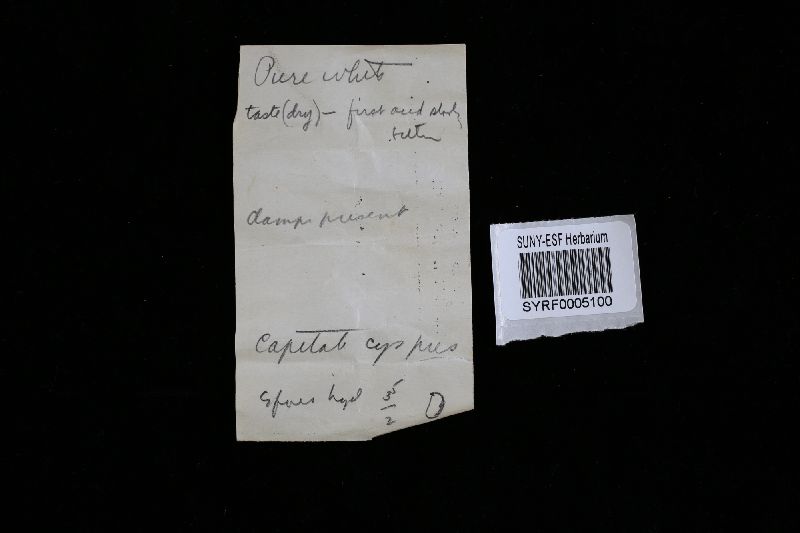 Pure white
taste (dry) – first acid slowly
bitter
clamps present
Capitate cys pres
Spores hyal 3.5
2
SUNY-ESF Herbarium
SYRF0005100